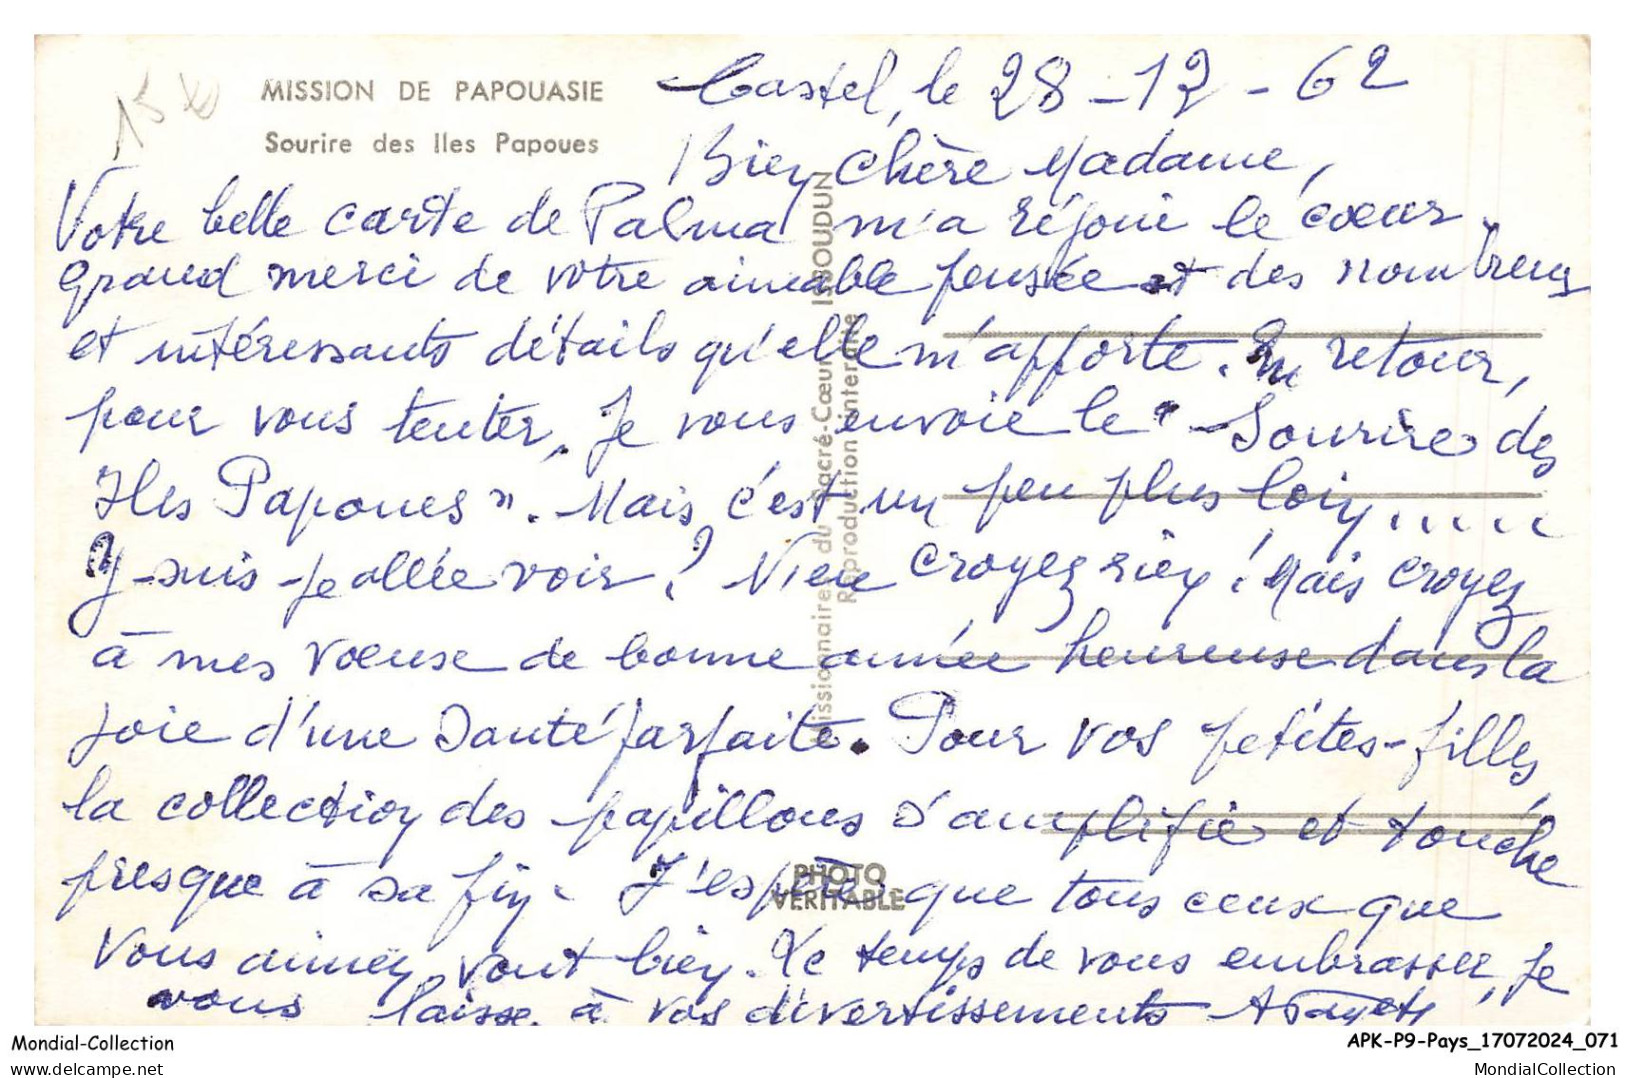 15
MISSION DE PAPOUASIE
Sourire des Iles Papoues
Castel, le 28-12-62
Bien chère Madame,
Votre belle carte de Palma m'a réjoui le cœur.
Grand merci de votre aimable pensée et des nombreux
et intéressants détails qu'elle m'apporte. En retour,
pour vous tenter, je vous envoie le "Sourire des
Iles Papoues". Mais c'est un peu plus loin.....
Y suis-je allée voir? N'en croyez rien! Mais croyez
à mes vœux de bonne année heureuse dans la
joie d'une santé parfaite. Pour vos petites-filles,
la collection des papillons s'amplifie et touche
presque à sa fin. J'espère que tous ceux que
vous aimez vont bien. Le temps de vous embrasser, je
vous laisse à vos divertissements
Missionnaire du Sacré-Cœur ISSOUDUN
Reproduction interdite
PHOTO
VERITABLE
Mondial-Collection
delcampe.net
APK-P9-Pays_17072024_071
MondialCollection